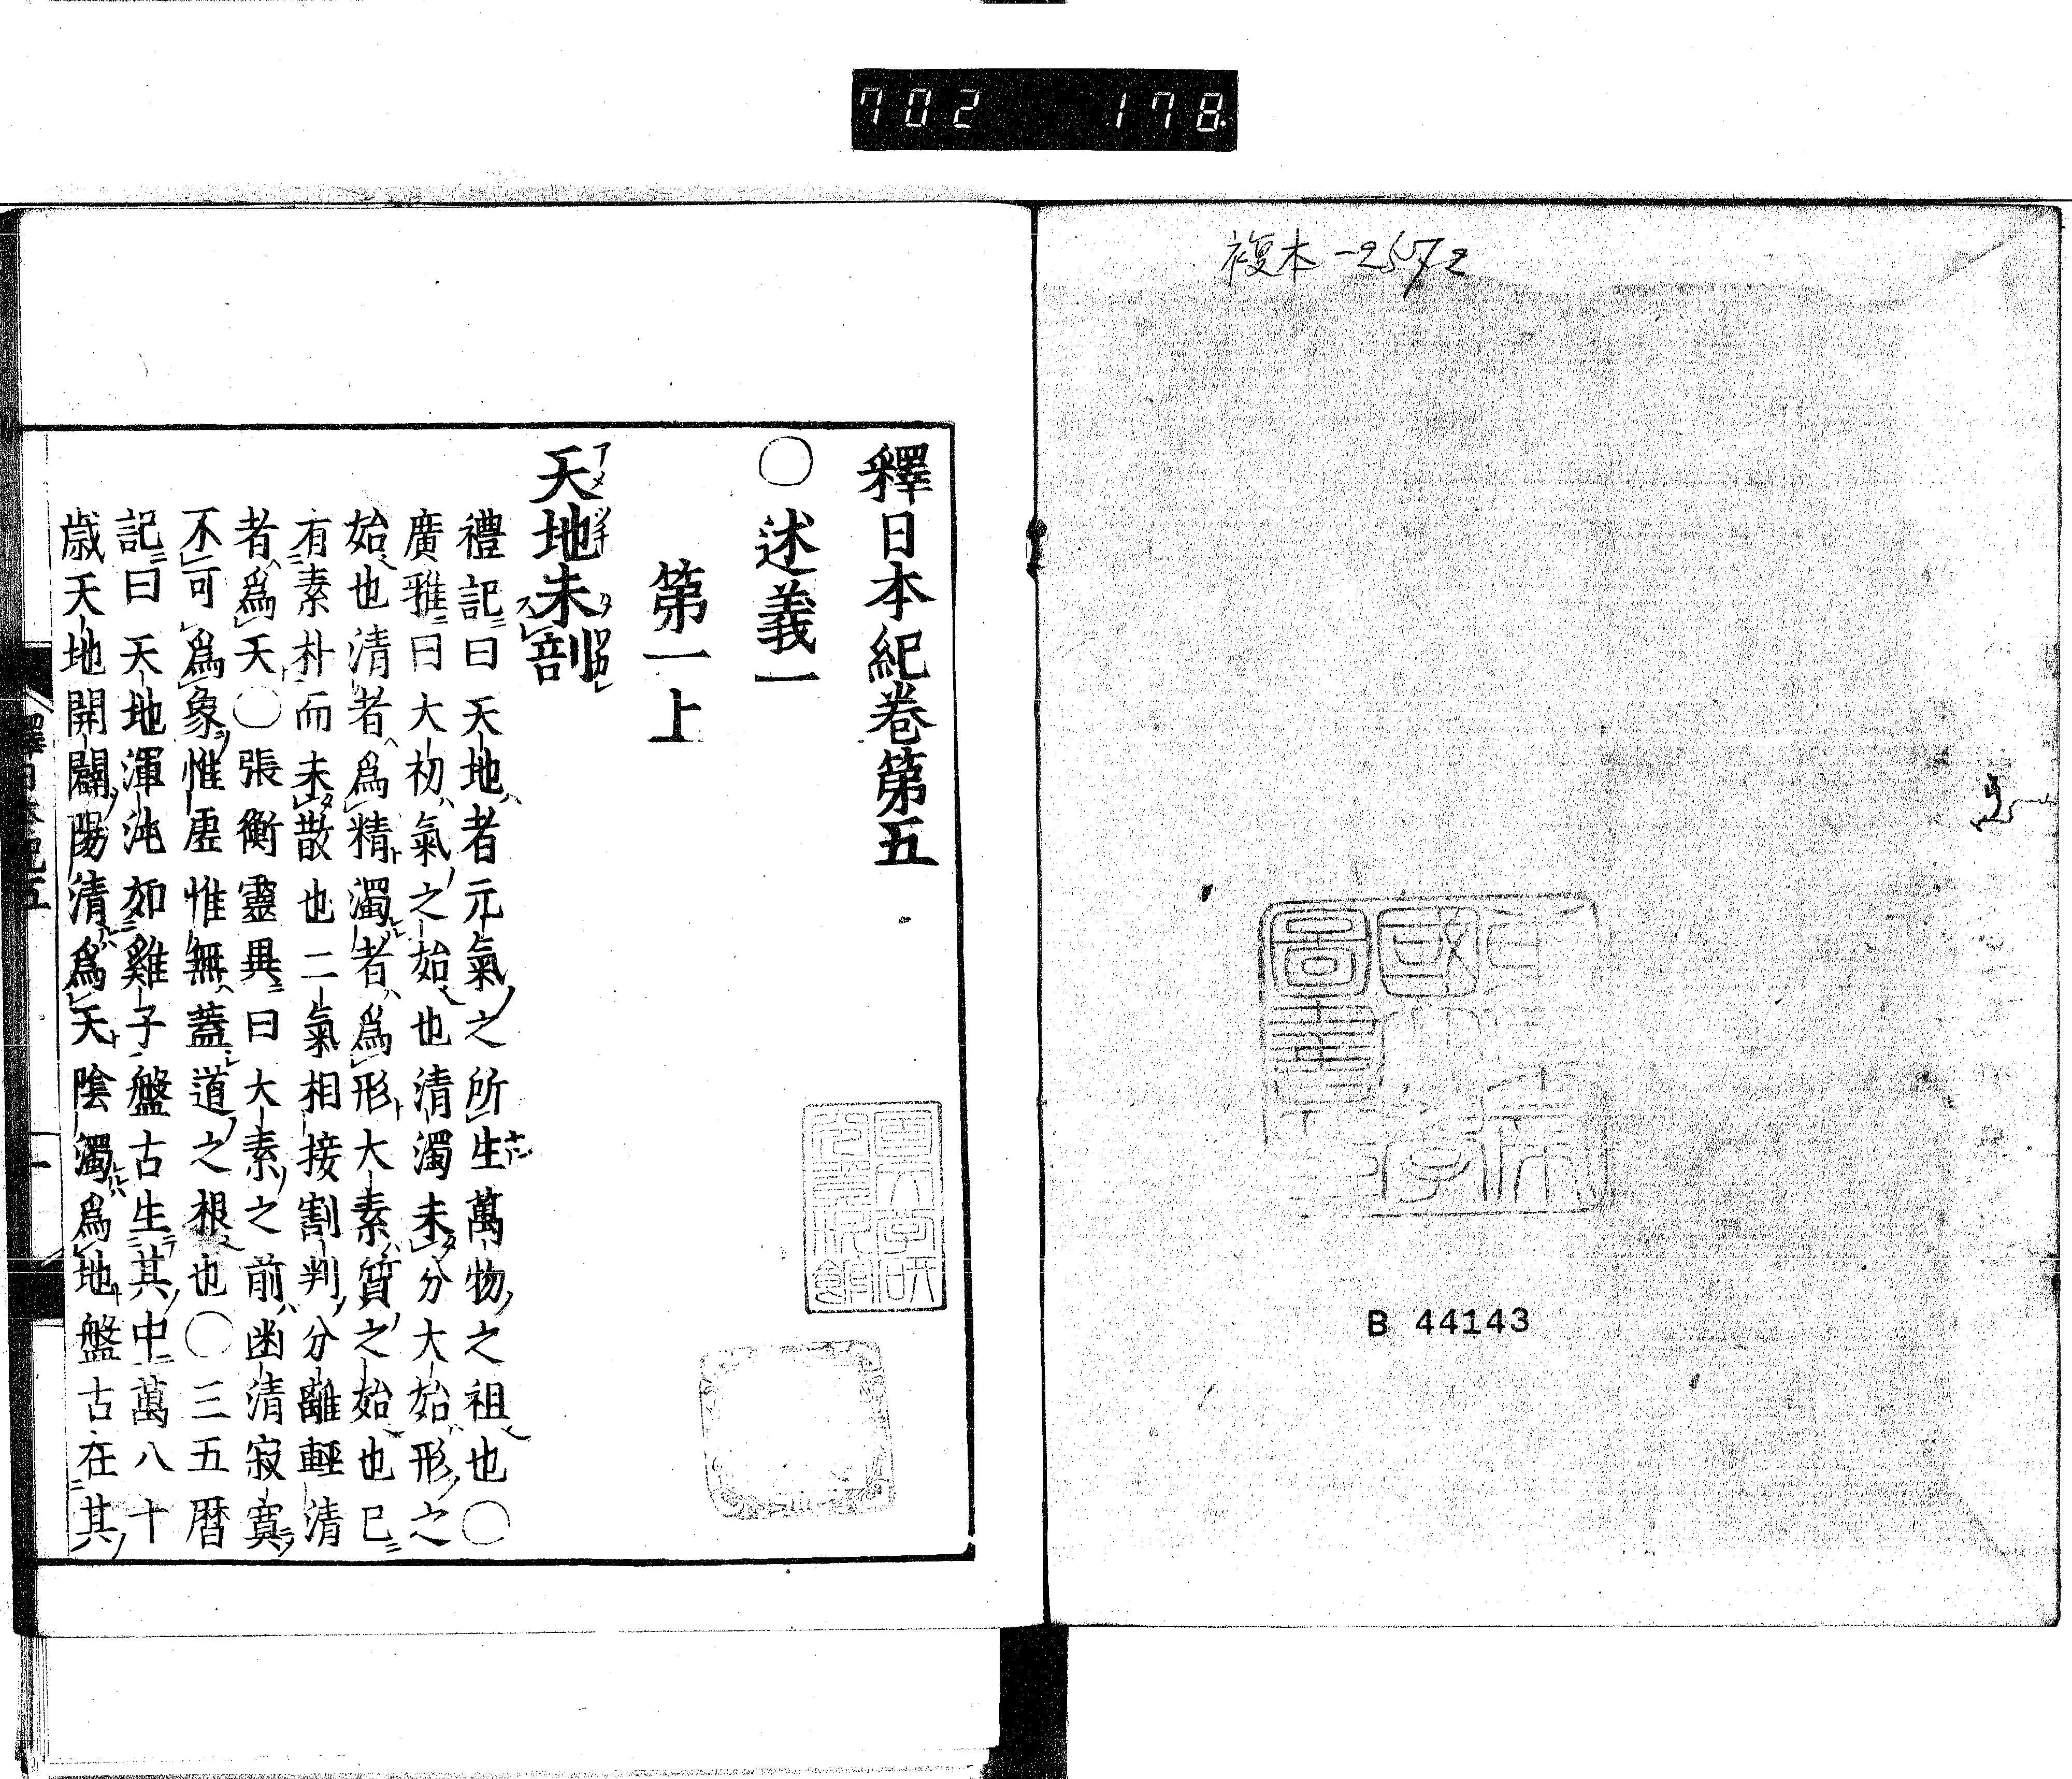 702 178
複本-2572
B 44143
釋日本紀卷第五
○述義一
第一上
天地未剖
禮記曰天地者元氣之所生萬物之祖也○
廣雅曰大初氣之始也清濁未分大始形之
始也清者爲精濁者爲形大素質之始也已
有素朴而未散也二氣相接割判分離輕清
者爲天○張衡靈異曰大素之前幽清寂寞
不可爲象惟虛惟無蓋道之根也○三五曆
記曰天地渾沌如雞子盤古生其中萬八十
歲天地開闢陽清爲天陰濁爲地盤古在其